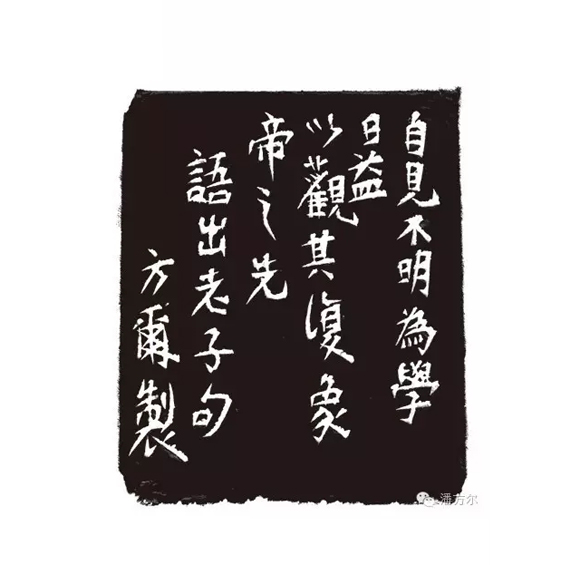 自見不明為學
日益
以觀其復象
帝之先
語出老子句
方爾製
潘方尔